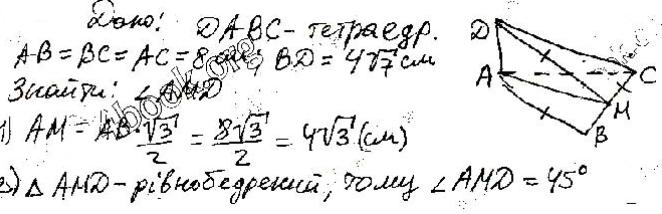 Дано: DABC - тетраедр.
AB = BC = AC = 8 см; BD = 4√7 см
Знайти: ∠AMD
1) AM = AB·√3/2 = 8√3/2 = 4√3 (см)
2) △ AMD - рівнобедрений, тому ∠AMD = 45°
D
A
C
M
B
4book.org